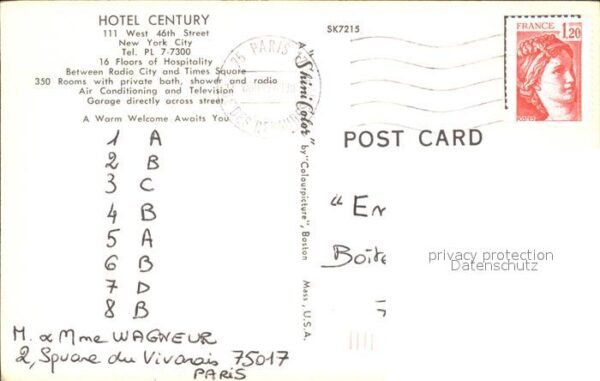 HOTEL CENTURY
111 West 46th Street
New York City
Tel. PL 7-7300
16 Floors of Hospitality
Between Radio City and Times Square
350 Rooms with private bath, shower and radio
Air Conditioning and Television
Garage directly across street
A Warm Welcome Awaits You
1 A
2 B
3 C
4 B
5 A
6 B
7 D
8 B
M. & Mme WAGNEUR
2, Square du Vivarais 75017
PARIS
A "Shini-Color" by "Colourpicture", Boston Mass, U.S.A.
SK7215
75 PARIS
FRANCE
1,20
POSTES
POST CARD
"En
Boîte
privacy protection
Datenschutz